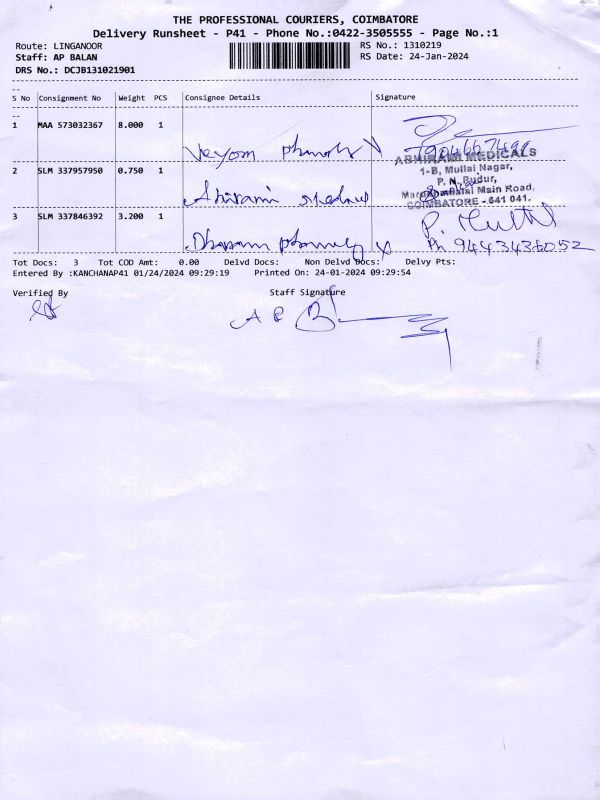 THE PROFESSIONAL COURIERS, COIMBATORE
Delivery Runsheet - P41 - Phone No.:0422-3505555 - Page No.:1
Route: LINGANOOR RS No.: 1310219
Staff: AP BALAN RS Date: 24-Jan-2024
DRS No.: DCJB131021901
S No Consignment No Weight PCS Consignee Details Signature
1 MAA 573032367 8.000 1
ABHIRAMI MEDICALS
2 SLM 337957950 0.750 1
1-B, Mullai Nagar,
P. N. Pudur,
Marudhamalai Main Road,
COIMBATORE - 641 041.
3 SLM 337846392 3.200 1
Ph 9443436052
Tot Docs: 3 Tot COD Amt: 0.00 Delvd Docs: Non Delvd Docs: Delvy Pts:
Entered By :KANCHANAP41 01/24/2024 09:29:19 Printed On: 24-01-2024 09:29:54
Verified By Staff Signature